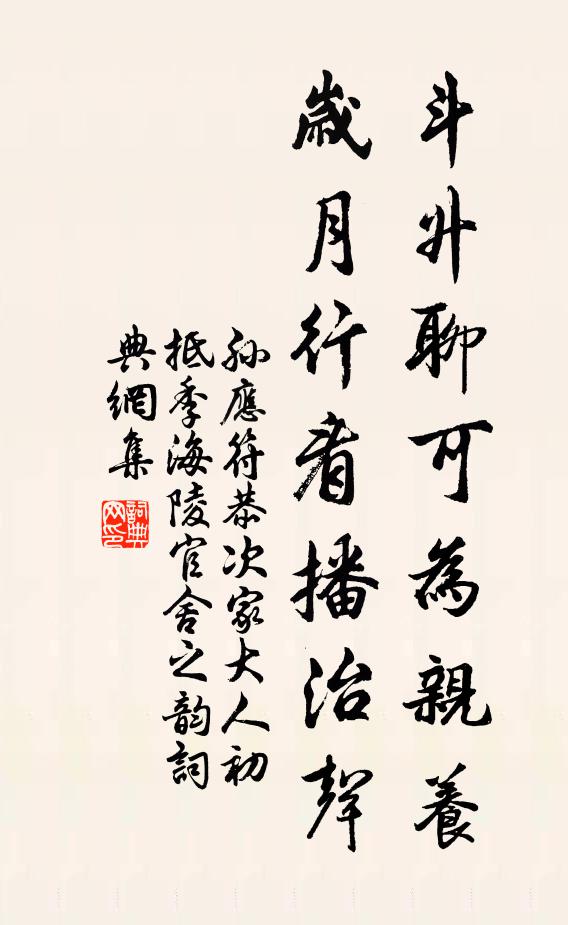 斗升聊可為親養
歲月行看播治聲
孫應符恭次家大人初
抵季海陵官舍之韵詞
典網集
詞典网印